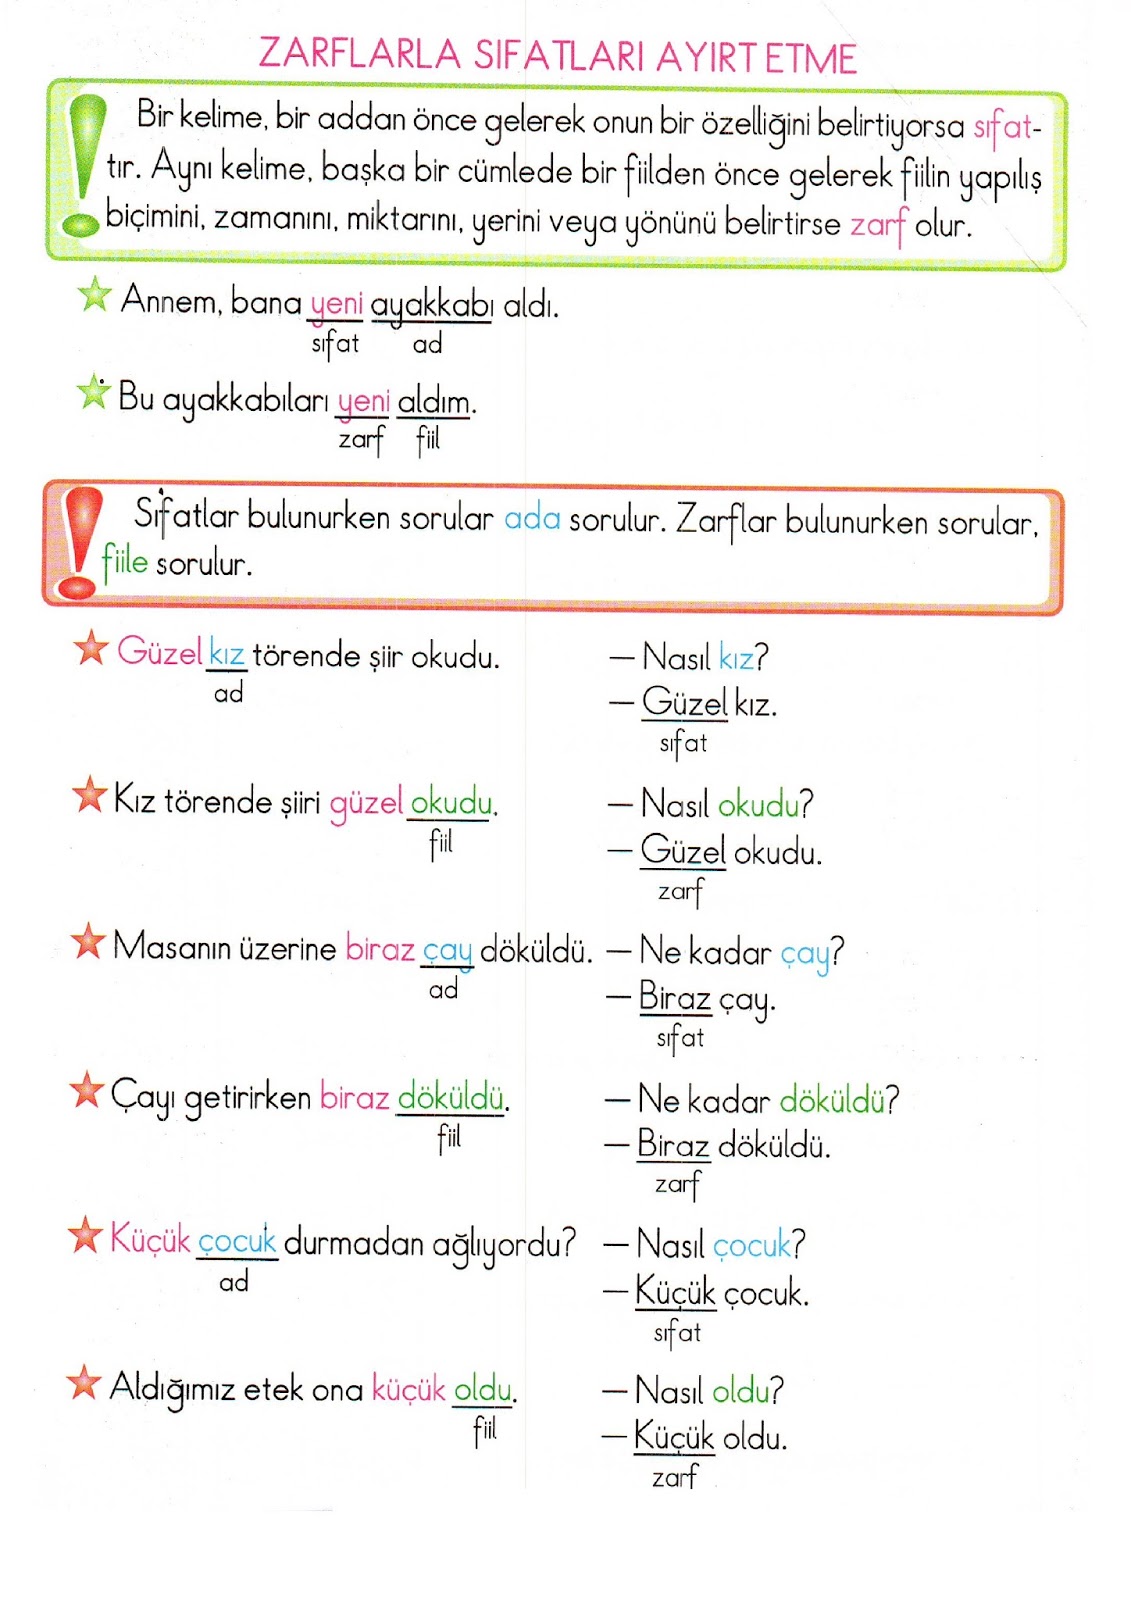 ZARFLARLA SIFATLARI AYIRT ETME
Bir kelime, bir addan önce gelerek onun bir özelliğini belirtiyorsa sıfat-
tır. Aynı kelime, başka bir cümlede bir fiilden önce gelerek fiilin yapılış
biçimini, zamanını, miktarını, yerini veya yönünü belirtirse zarf olur.
Annem, bana yeni ayakkabı aldı.
sıfat ad
Bu ayakkabıları yeni aldım.
zarf fiil
Sıfatlar bulunurken sorular ada sorulur. Zarflar bulunurken sorular,
fiile sorulur.
Güzel kız törende şiir okudu. — Nasıl kız?
ad
— Güzel kız.
sıfat
Kız törende şiiri güzel okudu. — Nasıl okudu?
fiil
— Güzel okudu.
zarf
Masanın üzerine biraz çay döküldü. — Ne kadar çay?
ad
— Biraz çay.
sıfat
Çayı getirirken biraz döküldü. — Ne kadar döküldü?
fiil
— Biraz döküldü.
zarf
Küçük çocuk durmadan ağlıyordu? — Nasıl çocuk?
ad
— Küçük çocuk.
sıfat
Aldığımız etek ona küçük oldu. — Nasıl oldu?
fiil
— Küçük oldu.
zarf